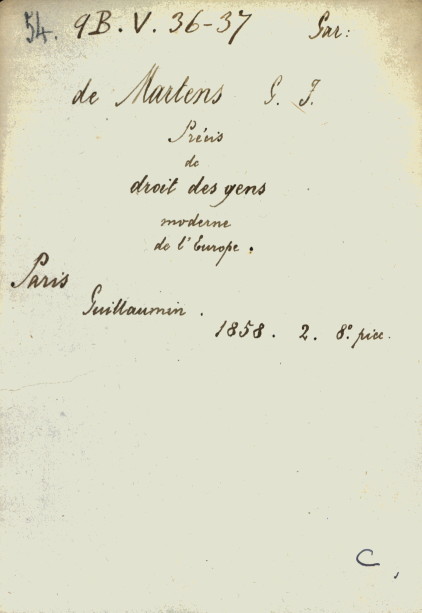 54. 9B. V. 36-37 Gar:
de Martens G. F.
Précis
de
droit des gens
moderne
de l'Europe.
Paris
Guillaumin.
1858. 2. 8° picc.
C,